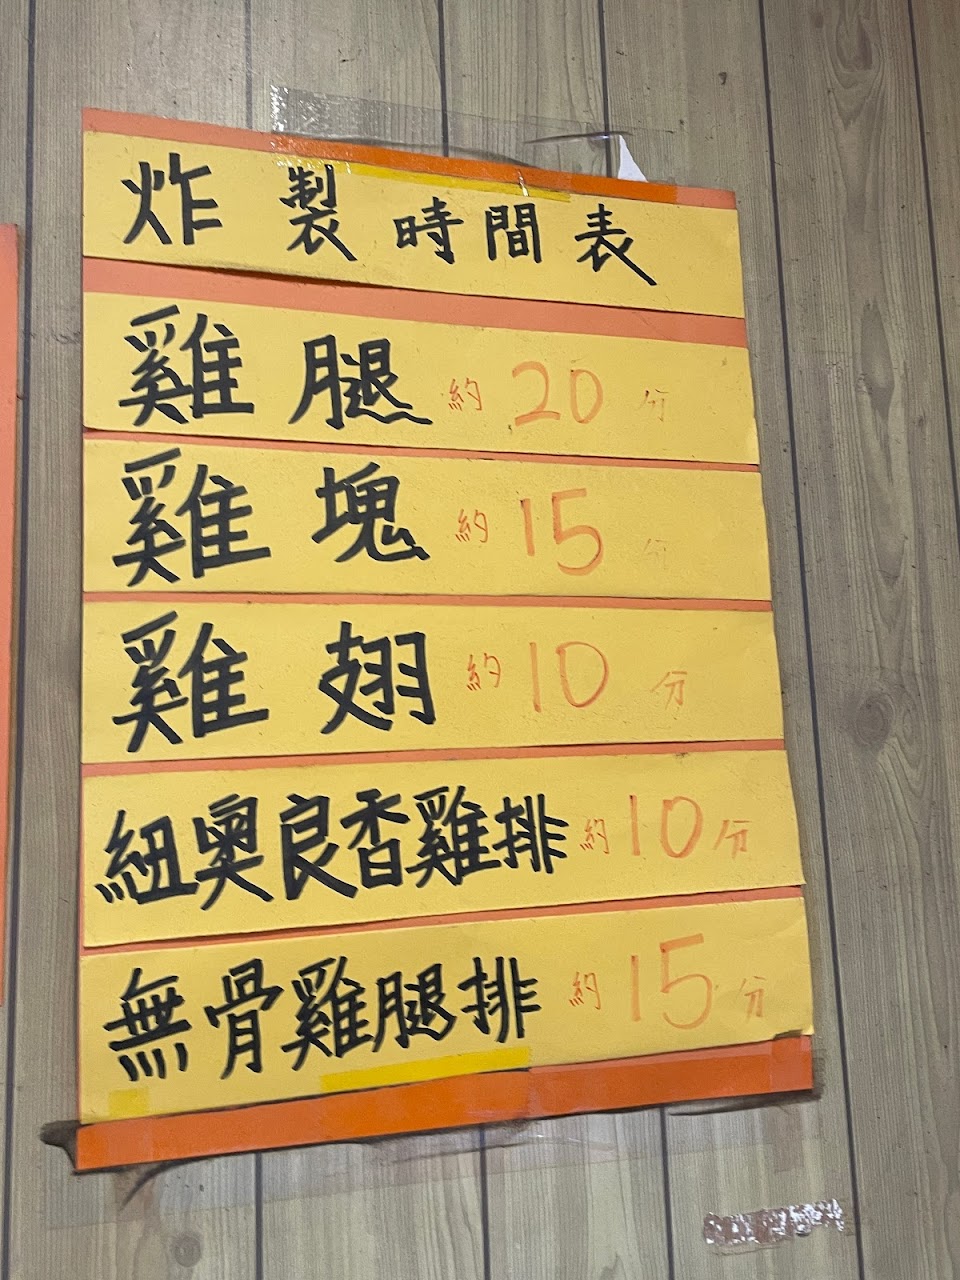 炸製時間表
雞腿 約 20 分
雞塊 約 15 分
雞翅 約 10 分
紐奧良香雞排 約 10 分
無骨雞腿排 約 15 分